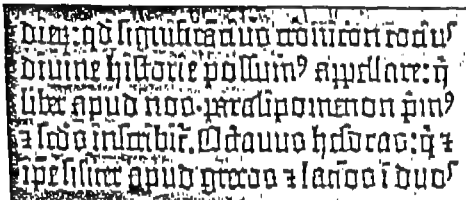 dieꝝ: qd̄ significātius cronicon tociꝰ
diuine historie possumꝰ appellare: q̄
liber apud nos · paralipomenon p̄mꝰ
⁊ scd̄s inscribit̄. Octauus hesdras: q̄ ⁊
ip̄e siliter apud grecos ⁊ latīos ī duos